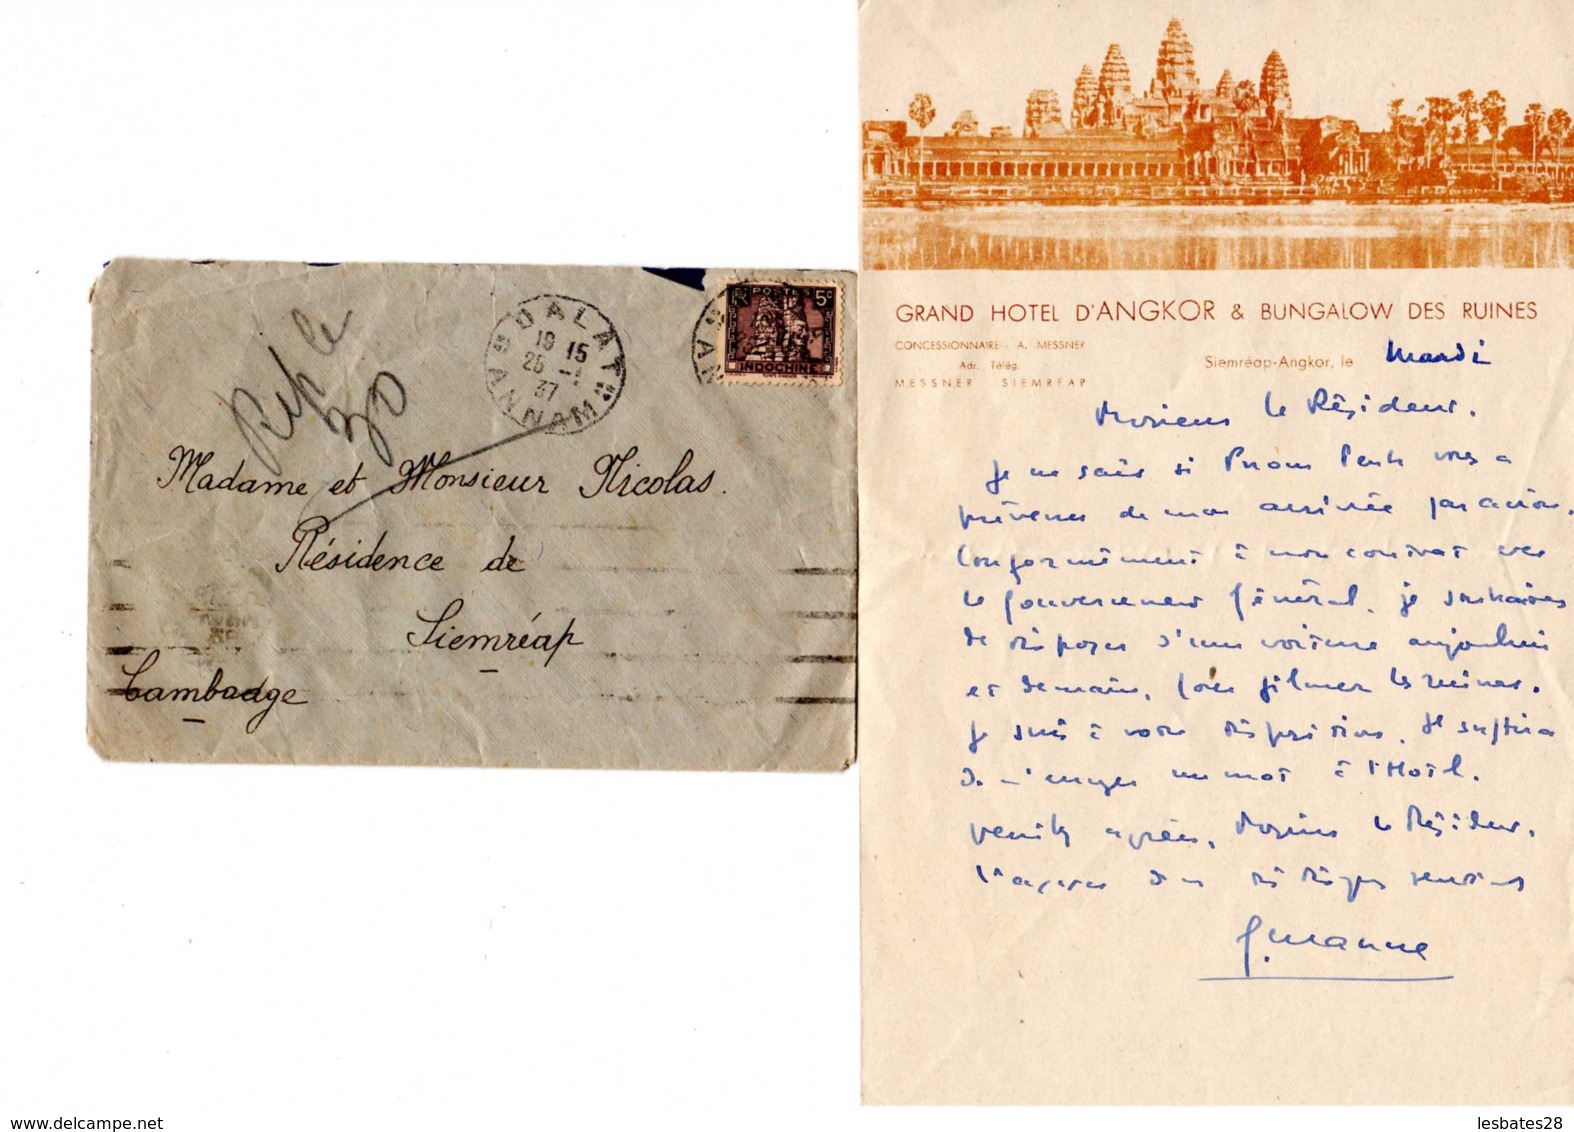 Rep le
30
DALAT
19 15
25 -1
37
ANNAM
RF POSTES 5c
INDOCHINE
AN
Madame et Monsieur Nicolas.
Résidence de
Siemréap
Cambodge
GRAND HOTEL D'ANGKOR & BUNGALOW DES RUINES
CONCESSIONNAIRE : A. MESSNER
Adr. Télég.
MESSNER SIEMREAP
Siemréap-Angkor, le Mardi
Monsieur le Résident.
Je ne sais si Pnom Penh vous a
prévenu de mon arrivée par avion.
Conformément à mon contrat avec
le Gouvernement Général, je souhaiterais
disposer d'une voiture aujourd'hui
et demain, pour filmer les ruines.
Je suis à votre disposition. Il suffira
de m'envoyer un mot à l'Hotel.
Veuillez agréer, Monsieur le Résident,
l'expression de mes sentiments
lesbates28